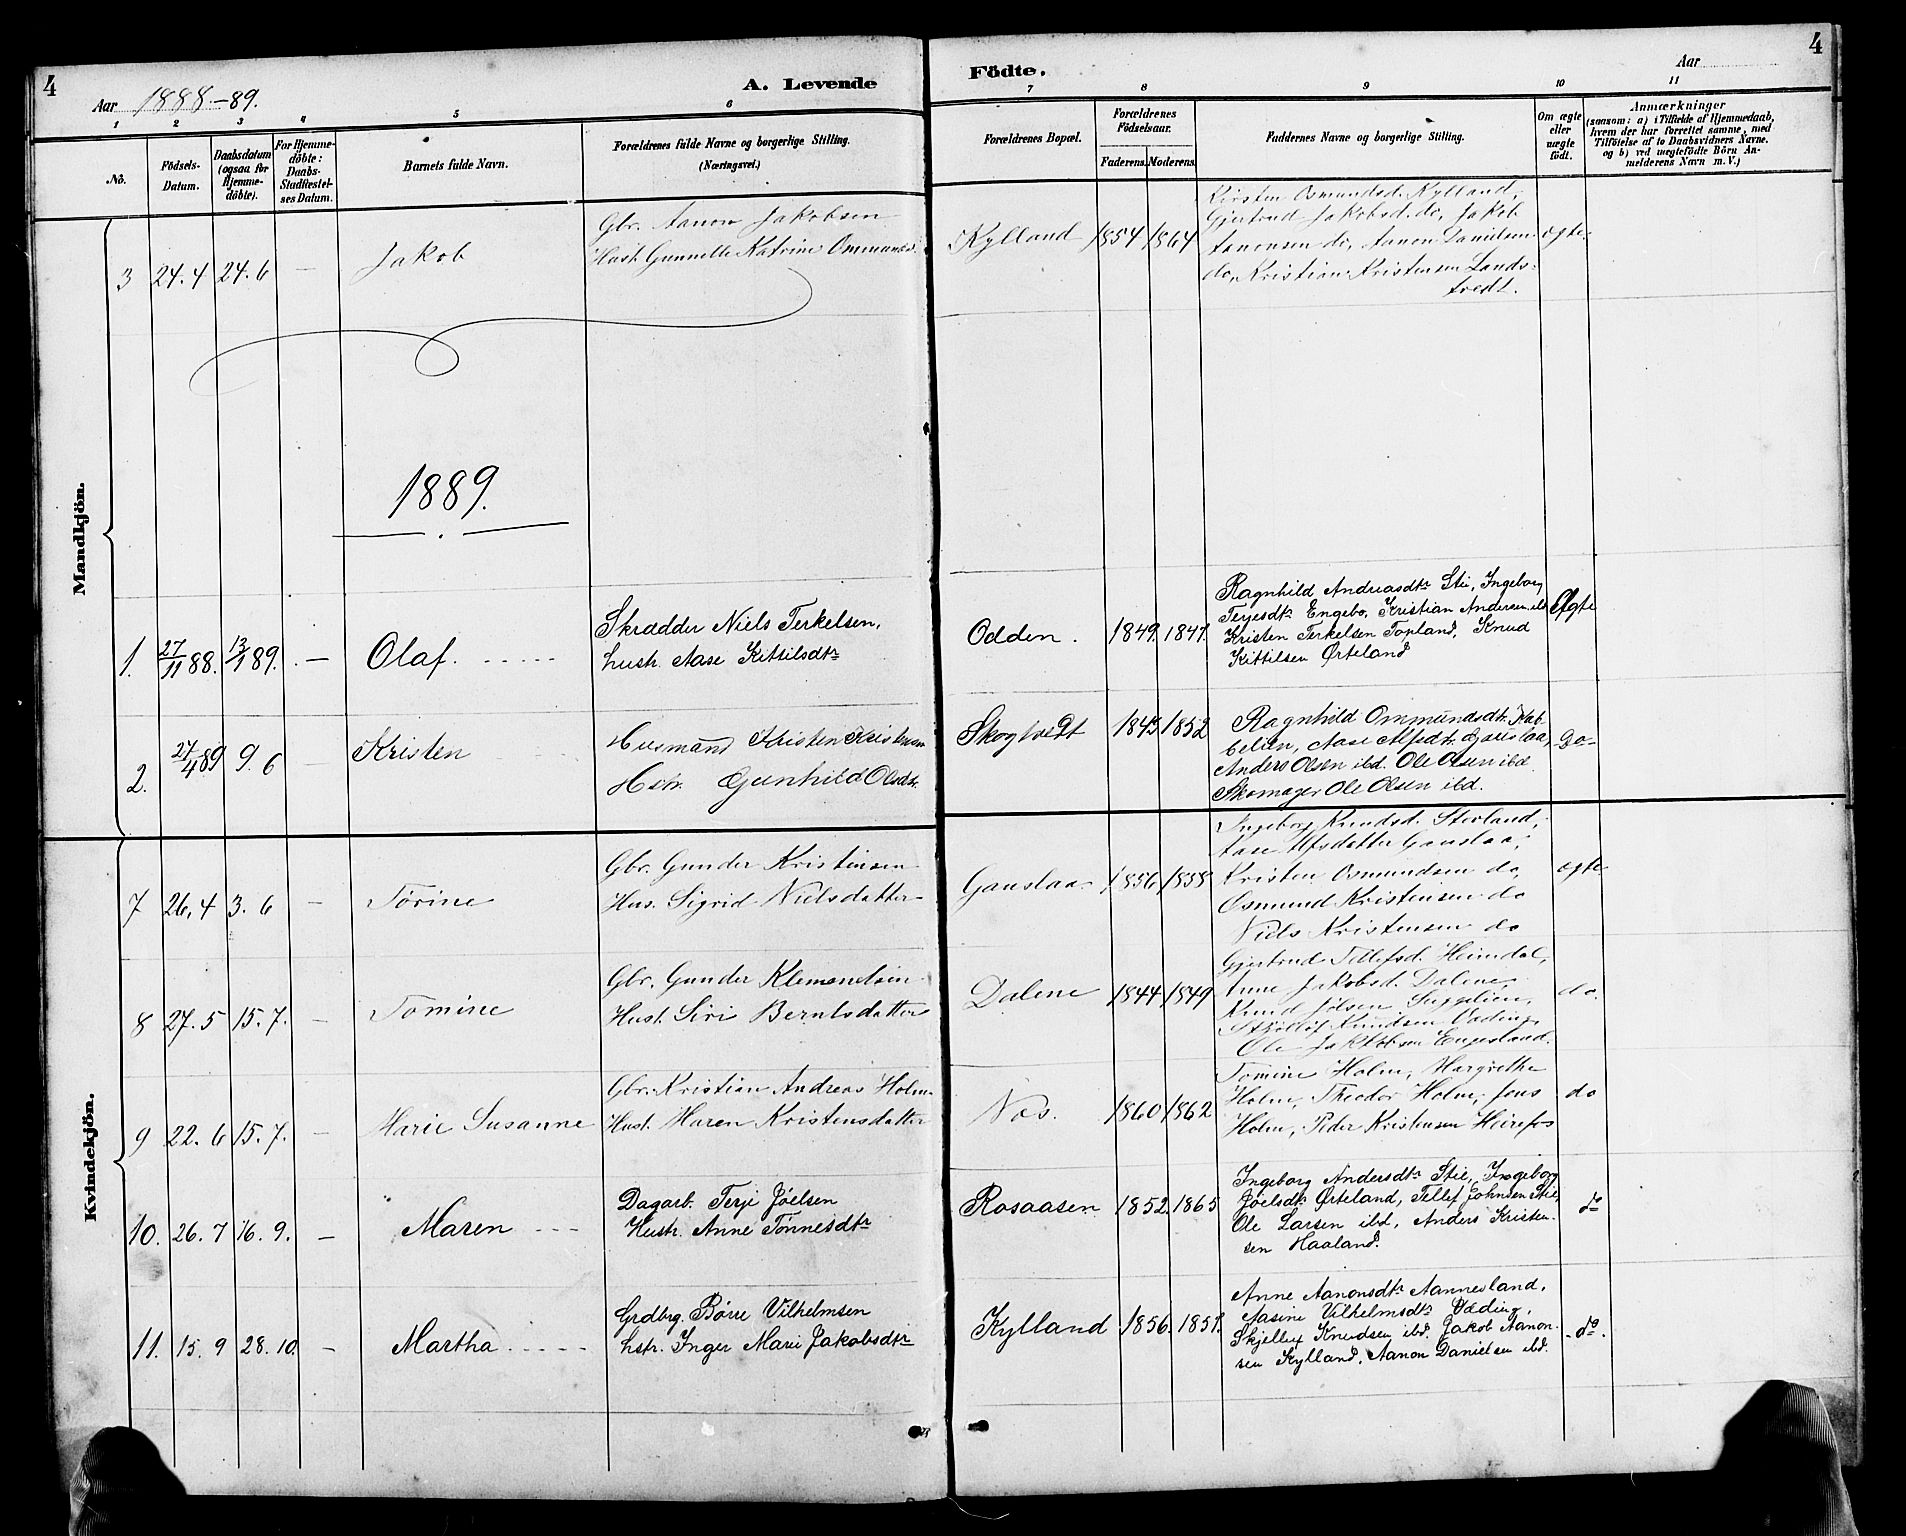 4
Aar 1888.-89.
A. Levende
Födte.
Aar
4
1
2
3
4
5
6
7
8
9
10
11
No.
Födsels-
Datum.
Daabsdatum
(ogsaa for
Hjemme-
döbte).
For Hjemme-
döbte:
Daabs-
Stadfæstel-
ses Datum.
Barnets fulde Navn.
Forældrenes fulde Navne og borgerlige Stilling.
(Næringsvei.)
Forældrenes Bopæl.
Forældrenes
Födselsaar.
Faderens.
Moderens.
Faddernes Navne og borgerlige Stilling.
Om ægte
eller
uægte
födt.
Anmærkninger
(saasom: a) i Tilfælde af Hjemmedaab,
hvem der har forrettet samme, med
Tilföielse af to Daabsvidners Navne.
og b) ved uægtefödte Börn An-
melderens Navn m. V.)
Mandkjön.
3 24.4 24.6 — Jakob
Gbr. Aanon Jakobsen
Hust. Gunnelle Katrine Ommunds
Kylland 1854 1864
Kirsten Osmundsd. Kylland,
Gjertrud Jakobsd. do, Jakob
Aanonsen do, Aanon Danielsen
do, Kristian Kristensen Lands-
tvedt.
ægte
1889.
1. 27/11 88. 13/1 89. — Olaf.
Skrædder Niels Terkelsen,
hustr. Aase Kittilsdtr
Odden. 1849. 1847.
Ragnhild Andreasdtr Stie, Ingeborg
Terjesdtr Engebo, Kristian Andersen ibd
Kristen Terkelsen Topland, Knud
Kittilsen Ørteland
Ægte
2. 27/4 89 9.6 Kristen
Husmand Kristen Kristensen
Hstr. Gunhild Olsdtr.
Skogtvedt 1843 1852
Ragnhild Ommundsdtr.
Aase
Anders Olsen ibd. Ole Olsen ibd
Skomager Ole Olsen ibd.
do
Kvindekjön.
7 26.4 3.6 — Törine
Gbr. Gunder Kristensen
Hus. Sigrid Nielsdatter
Gauslaa 1856 1858
Ingeborg Knudsd. Stevland,
Aase Alfsdatter Gauslaa,
Kristen Osmundsen do,
Osmund Kristensen do
Niels Kristensen do
ægte
8 27.5 15.7. — Tomine
Gbr. Gunder Klemendsen
Hust. Siri Berntsdatter
Dalene 1844 1849
Gjertrud Tellefsd. Heimdal,
Anne Jakobsd. Dalene,
Knud
Knudsen Væding,
Ole Jakobsen Engesland.
do.
9 22.6 15.7. — Marie Susanne
Gbr. Kristian Andreas Holm.
Hust. Maren Kristensdatter
Næs. 1860 1862
Tomine Holm, Margrethe
Holm, Theodor Holm, Jens
Holm, Peder Kristensen Heirefos
do
10. 26.7 16.9. — Maren
Dagarb. Terje Jóelsen
Hustr. Anne Tönnesdtr
Rosaasen 1852 1865
Ingeborg Andersdtr Stie, Ingeborg
Jóelsdtr Ørteland, Tellef Johnsen Stie,
Ole Larsen ibd, Anders Kristen-
sen Haaland.
do
11. 15.9 28.10 — Martha
Grdbrg. Börre Vilhelmsen
hstr. Inger Marie Jakobsdtr
Kylland 1856. 1857.
Anne Aanonsdtr Aannevland,
Aasine Vilhelmsdtr Væding,
Skjellef Knudsen ibd, Jakob Aanon-
sen Kylland, Aanon Danielsen ibd.
do.